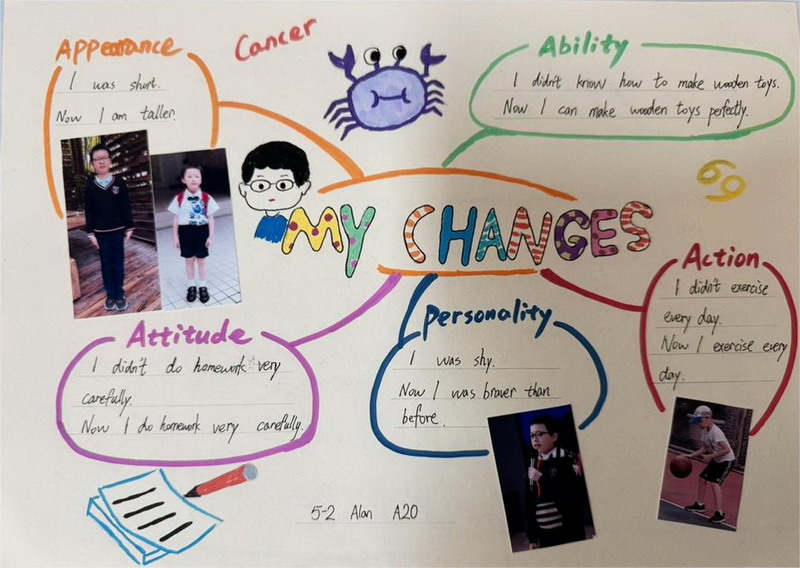 Appearance
I was short.
Now I am taller.
Cancer
Ability
I didn't know how to make wooden toys.
Now I can make wooden toys perfectly.
MY CHANGES
Attitude
I didn't do homework very
carefully.
Now I do homework very carefully.
Personality
I was shy.
Now I was braver than
before.
Action
I didn't exercise
every day.
Now I exercise every
day.
5-2 Alan A20